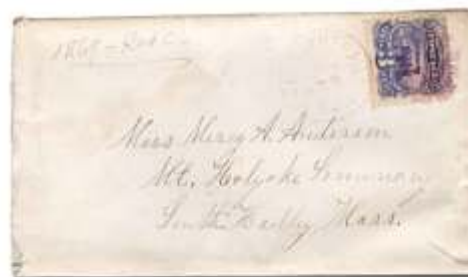 Miss Mercy A. Anderson
Mt. Holyoke Seminary
South Hadley Mass.